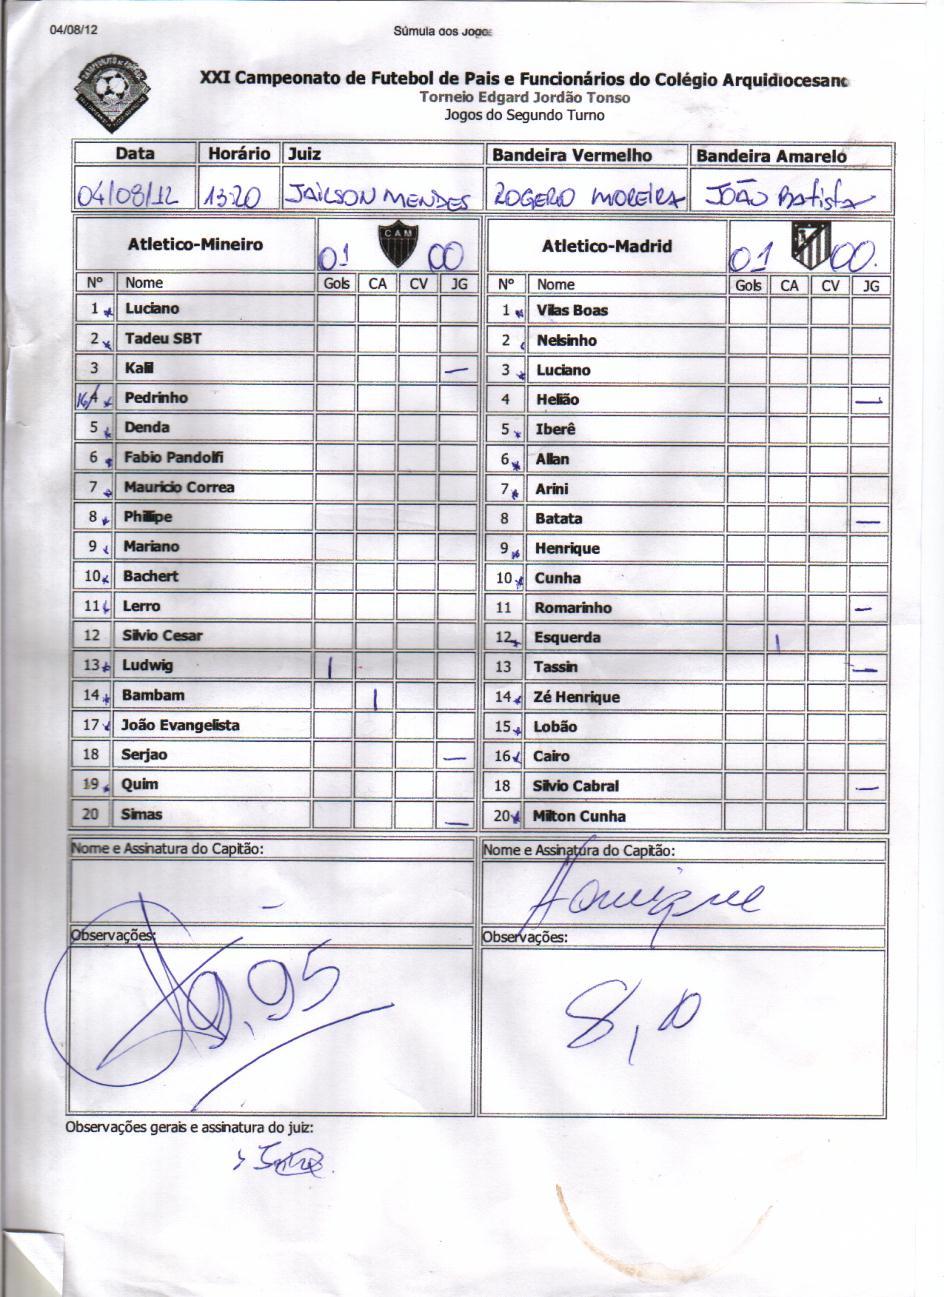 04/08/12 Súmula dos Jogos
XXI Campeonato de Futebol de Pais e Funcionários do Colégio Arquidiocesano
Torneio Edgard Jordão Tonso
Jogos do Segundo Turno
Data Horário Juiz Bandeira Vermelho Bandeira Amarelo
04/08/12 13:20 JAILSON MENDES ROGERIO MOREIRA JOÃO Batista
Atletico-Mineiro 01 CAM 00 Atletico-Madrid 01 00.
Nº Nome Gols CA CV JG Nº Nome Gols CA CV JG
1 Luciano 1 Vilas Boas
2 Tadeu SBT 2 Nelsinho
3 Kalil — 3 Luciano
16/4 Pedrinho 4 Helião —
5 Denda 5 Iberê
6 Fabio Pandolfi 6 Allan
7 Mauricio Correa 7 Arini
8 Phillipe 8 Batata —
9 Mariano 9 Henrique
10 Bachert 10 Cunha
11 Lerro 11 Romarinho —
12 Silvio Cesar 12 Esquerda |
13 Ludwig | 13 Tassin —
14 Bambam | 14 Zé Henrique
17 João Evangelista 15 Lobão
18 Serjao — 16 Cairo
19 Quim 18 Silvio Cabral —
20 Simas — 20 Milton Cunha
Nome e Assinatura do Capitão: Nome e Assinatura do Capitão:
— Henrique
Observações: Observações:
9,95 8,0
Observações gerais e assinatura do juiz: